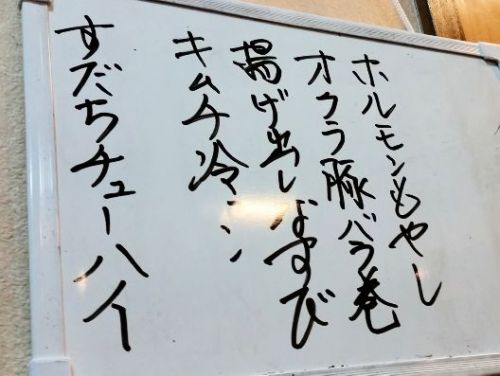 ホルモンもやし
オクラ豚バラ巻
揚げ出しなすび
キムチ冷
すだちチューハイ